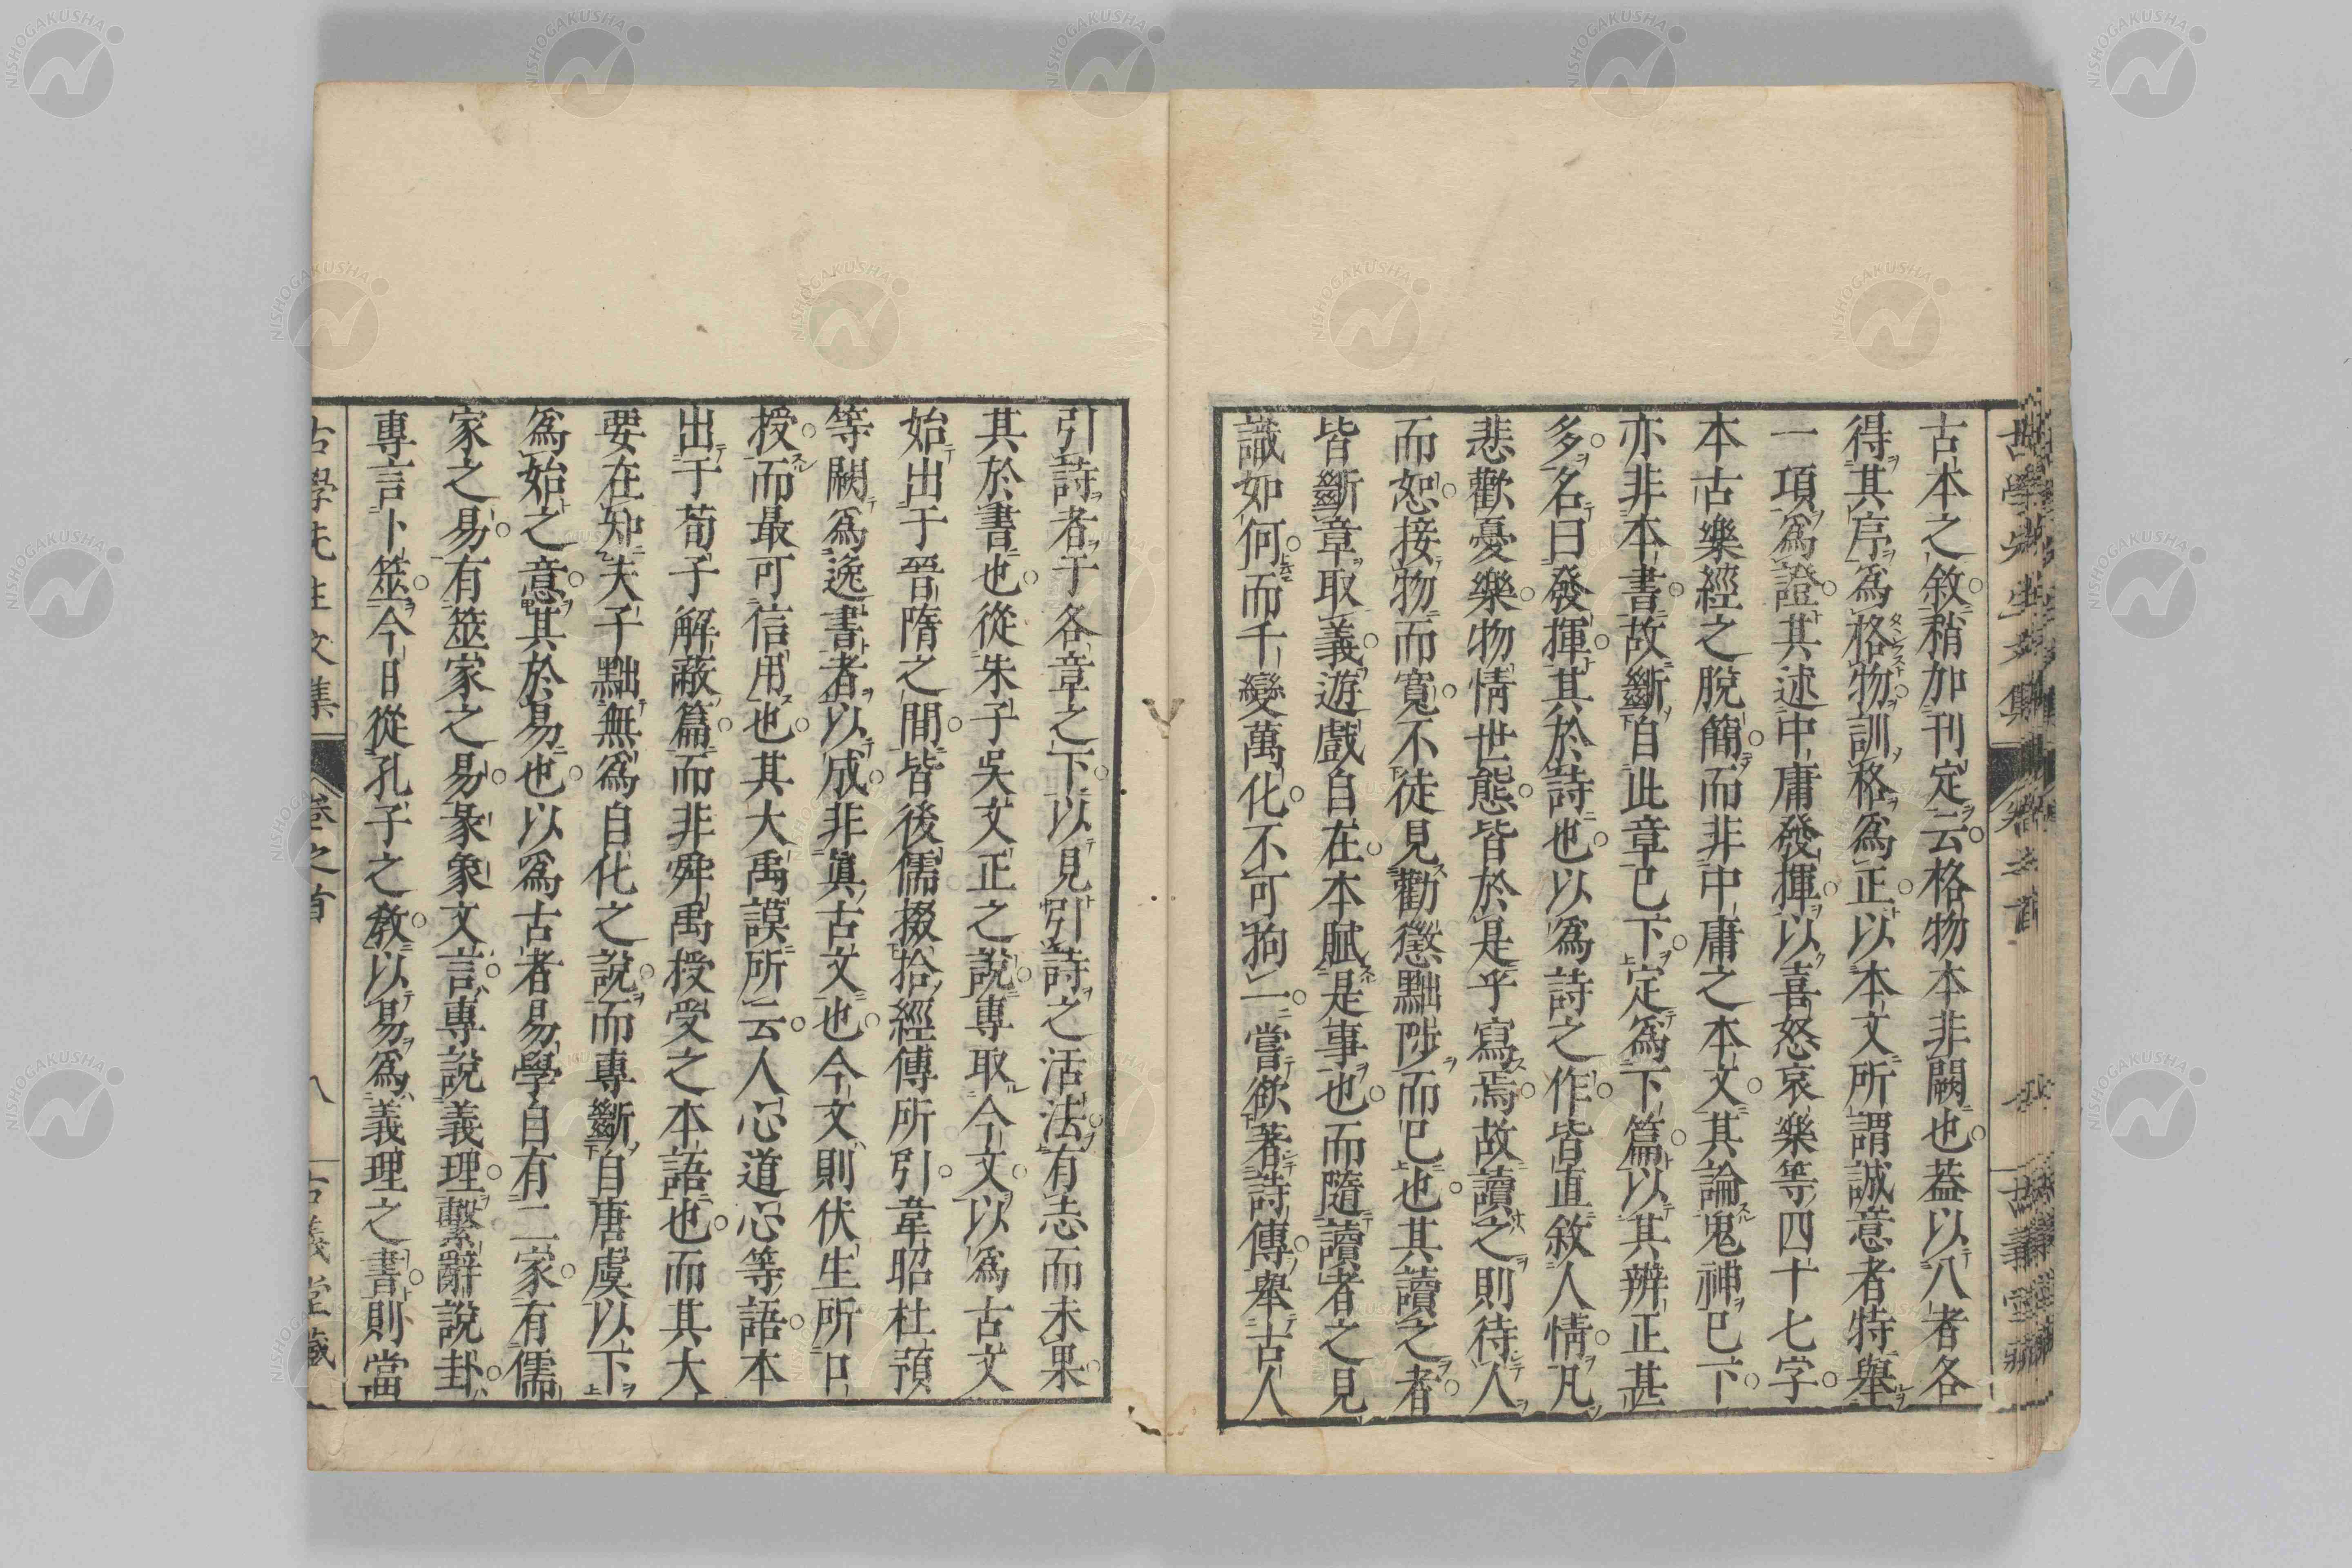 古本之敘稍加刊定云格物本非闕也蓋以八者各
得其序爲格物訓格爲正以本文所謂誠意者特舉
一項爲證其述中庸發揮以喜怒哀樂等四十七字
本古樂經之脫簡而非中庸之本文其論鬼神已下
亦非本書故斷自此章已下定爲下篇以其辨正甚
多名曰發揮其於詩也以爲詩之作皆直敘人情凡
悲歡憂樂物情世態皆於是乎寫焉故讀之則待人
而恕接物而寬不徒見勸懲黜陟而已也其讀之者
皆斷章取義遊戲自在本賦是事也而隨讀者之見
識如何而千變萬化不可狥一嘗欲著詩傳舉古人
引詩者于各章之下以見引詩之活法有志而未果
其於書也從朱子吳文正之說專取今文以爲古文
始出于晉隋之間皆後儒掇拾經傳所引韋昭杜預
等闕爲逸書者以成非眞古文也今文則伏生所口
授而最可信用也其大禹謨所云人心道心等語本
出于荀子解蔽篇而非舜禹授受之本語也而其大
要在知夫子黜無爲自化之說而專斷自唐虞以下
爲始之意其於易也以爲古者易學自有二家有儒
家之易有筮家之易彖象文言專說義理繫辭說卦
專言卜筮今日從孔子之敎以易爲義理之書則當
古學先生文集 卷之首 八 古義堂藏
NISHOGAKUSHA